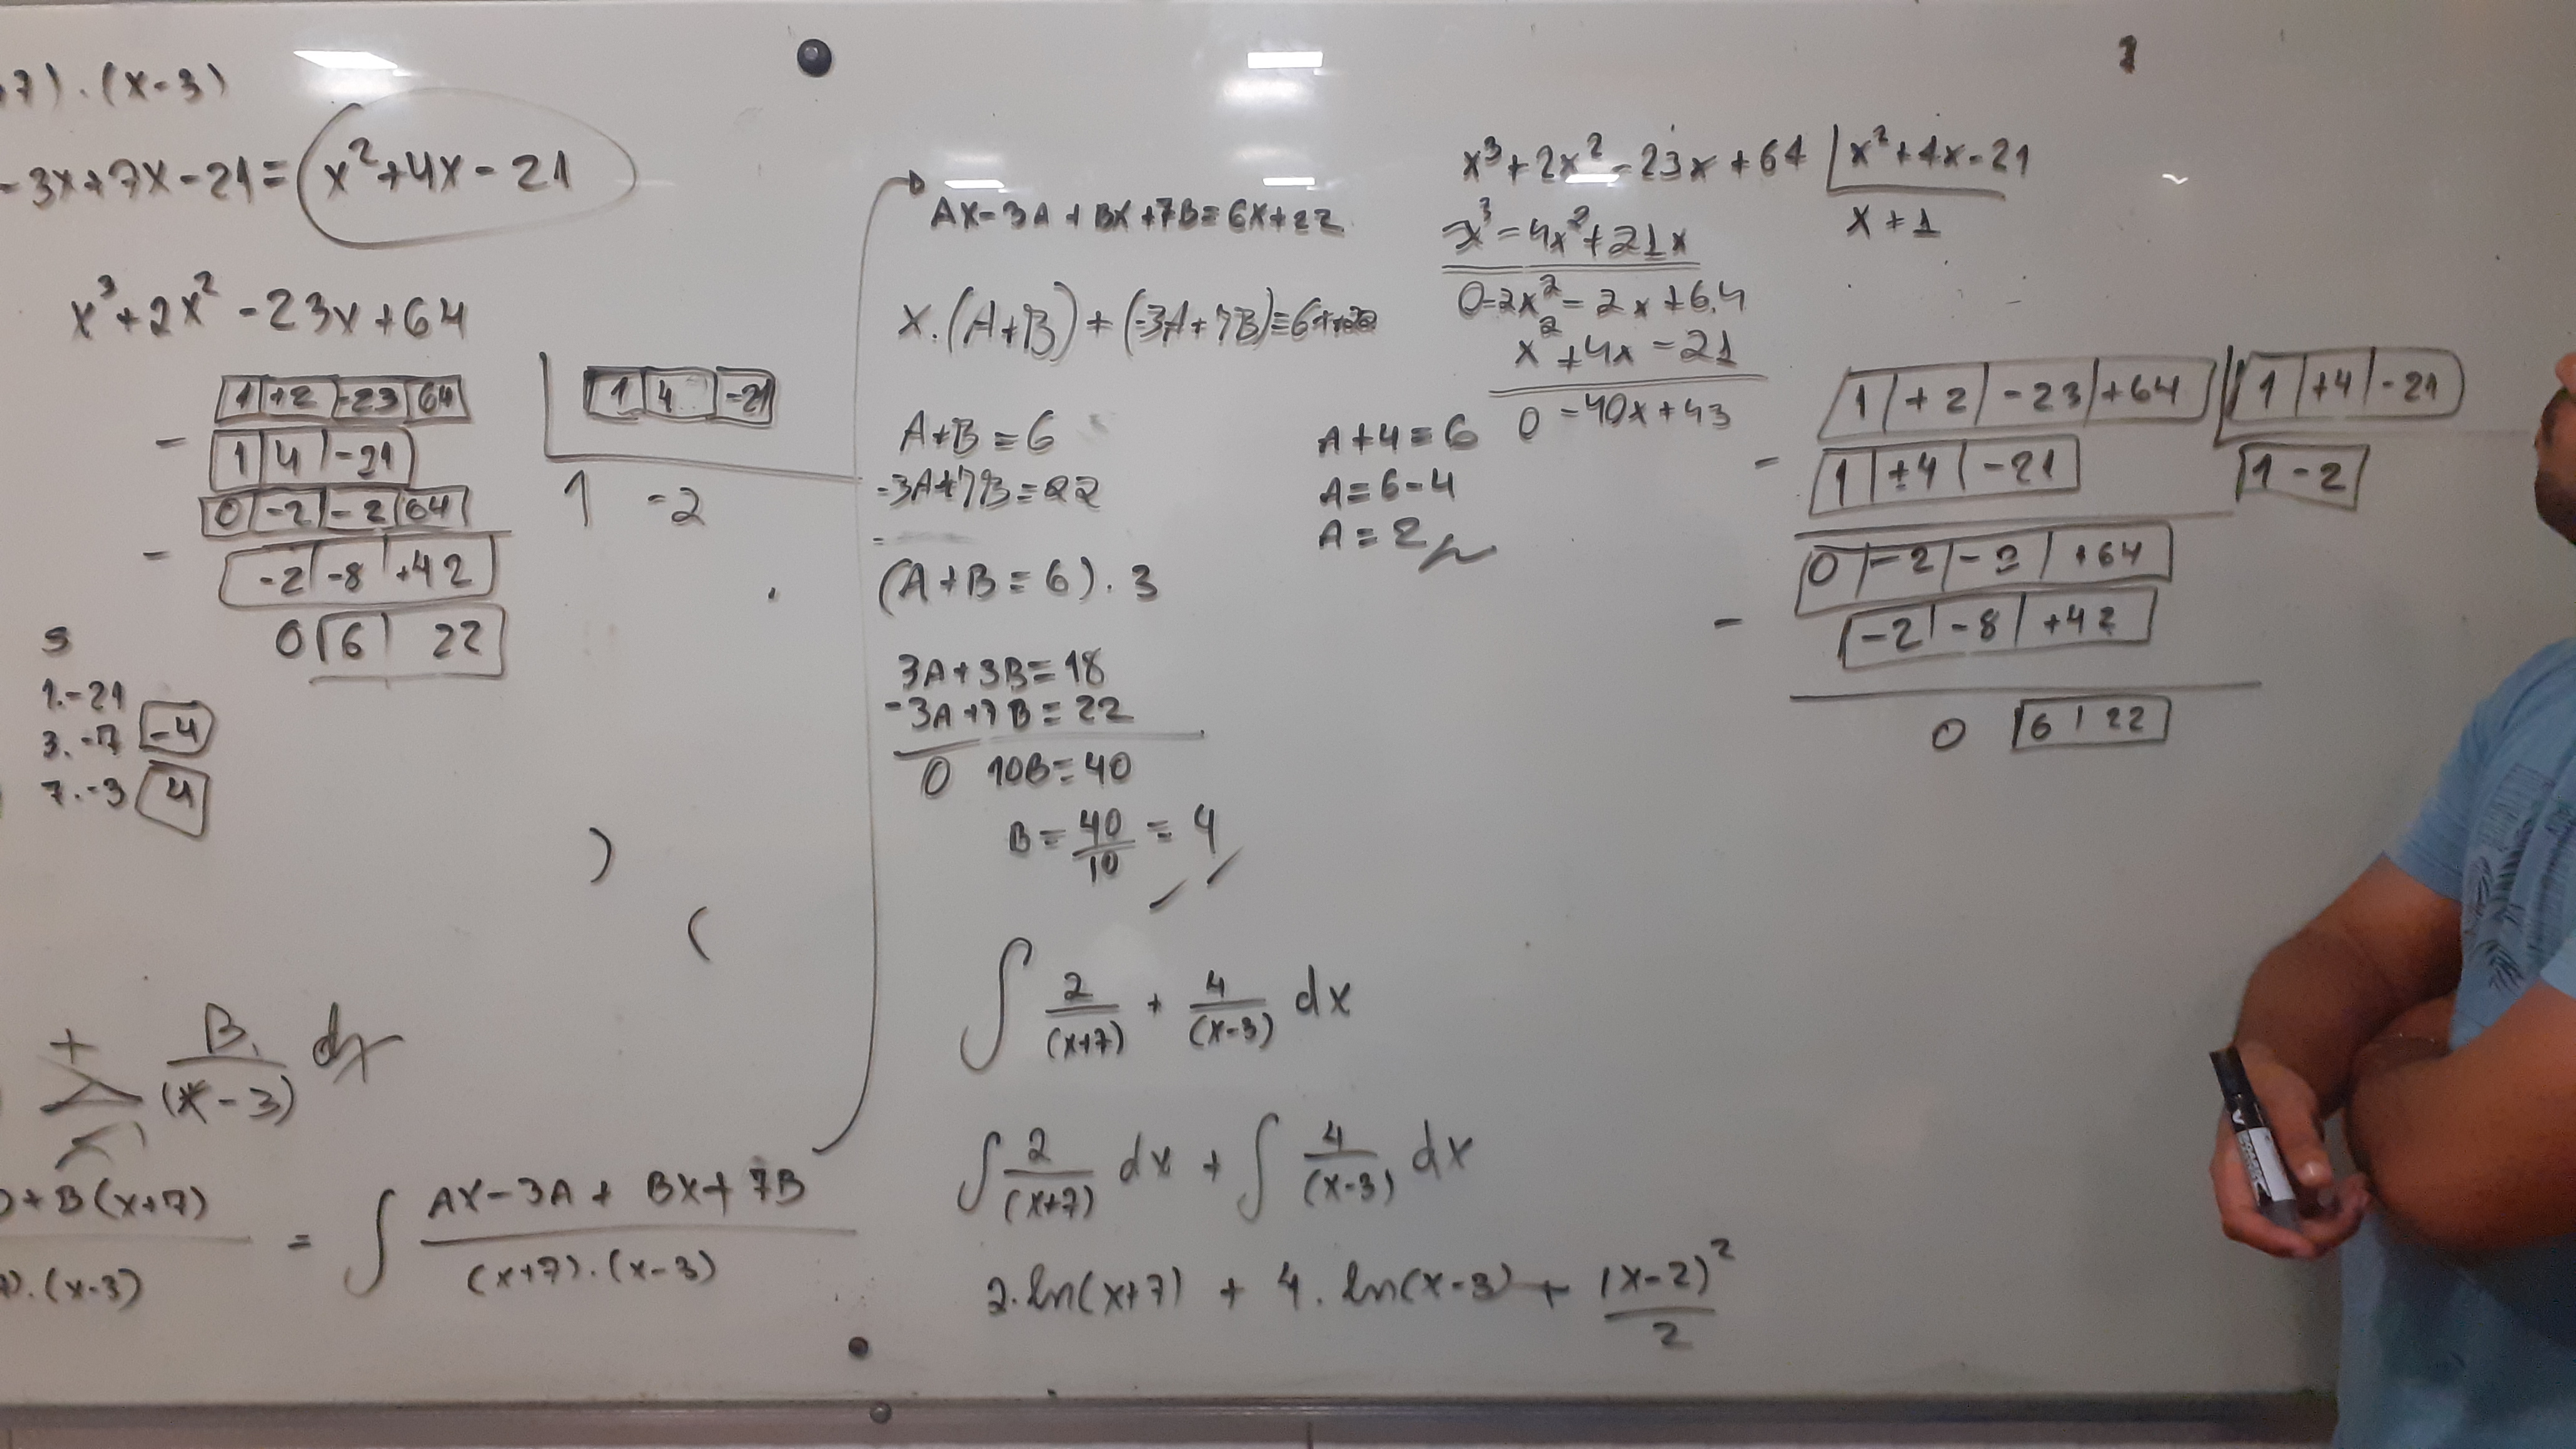 7).(x-3)
-3x+7x-21=x²+4x-21
x³+2x²-23x+64
1 +2 -23 64
1 4 -21
- 1 4 -21
1 -2
0 -2 -2 64
- -2 -8 +42
0 6 22
s
1.-21
3.-7 -4
7.-3 4
)
(
+ B/(x-3) dx
)+B(x+7)
).(x-3)
= ∫ (Ax-3A+Bx+7B)/((x+7).(x-3))
Ax-3A+Bx+7B=6x+22
x.(A+B)+(-3A+7B)=
A+B=6
-3A+7B=22
(A+B=6).3
3A+3B=18
-3A+7B=22
0 10B=40
B=40/10=4
A+4=6
A=6-4
A=2
∫ 2/(x+7) + 4/(x-3) dx
∫ 2/(x+7) dx + ∫ 4/(x-3) dx
2.ln(x+7) + 4.ln(x-3) + (x-2)²/2
x³+2x²-23x+64 | x²+4x-21
x+1
-x³-4x²+21x
0-2x²-2x+64
x²+4x-21
0-40x+43
1 +2 -23 +64 | 1 +4 -21
- 1 +4 -21
1 -2
0 -2 -2 +64
- -2 -8 +42
0 6 22